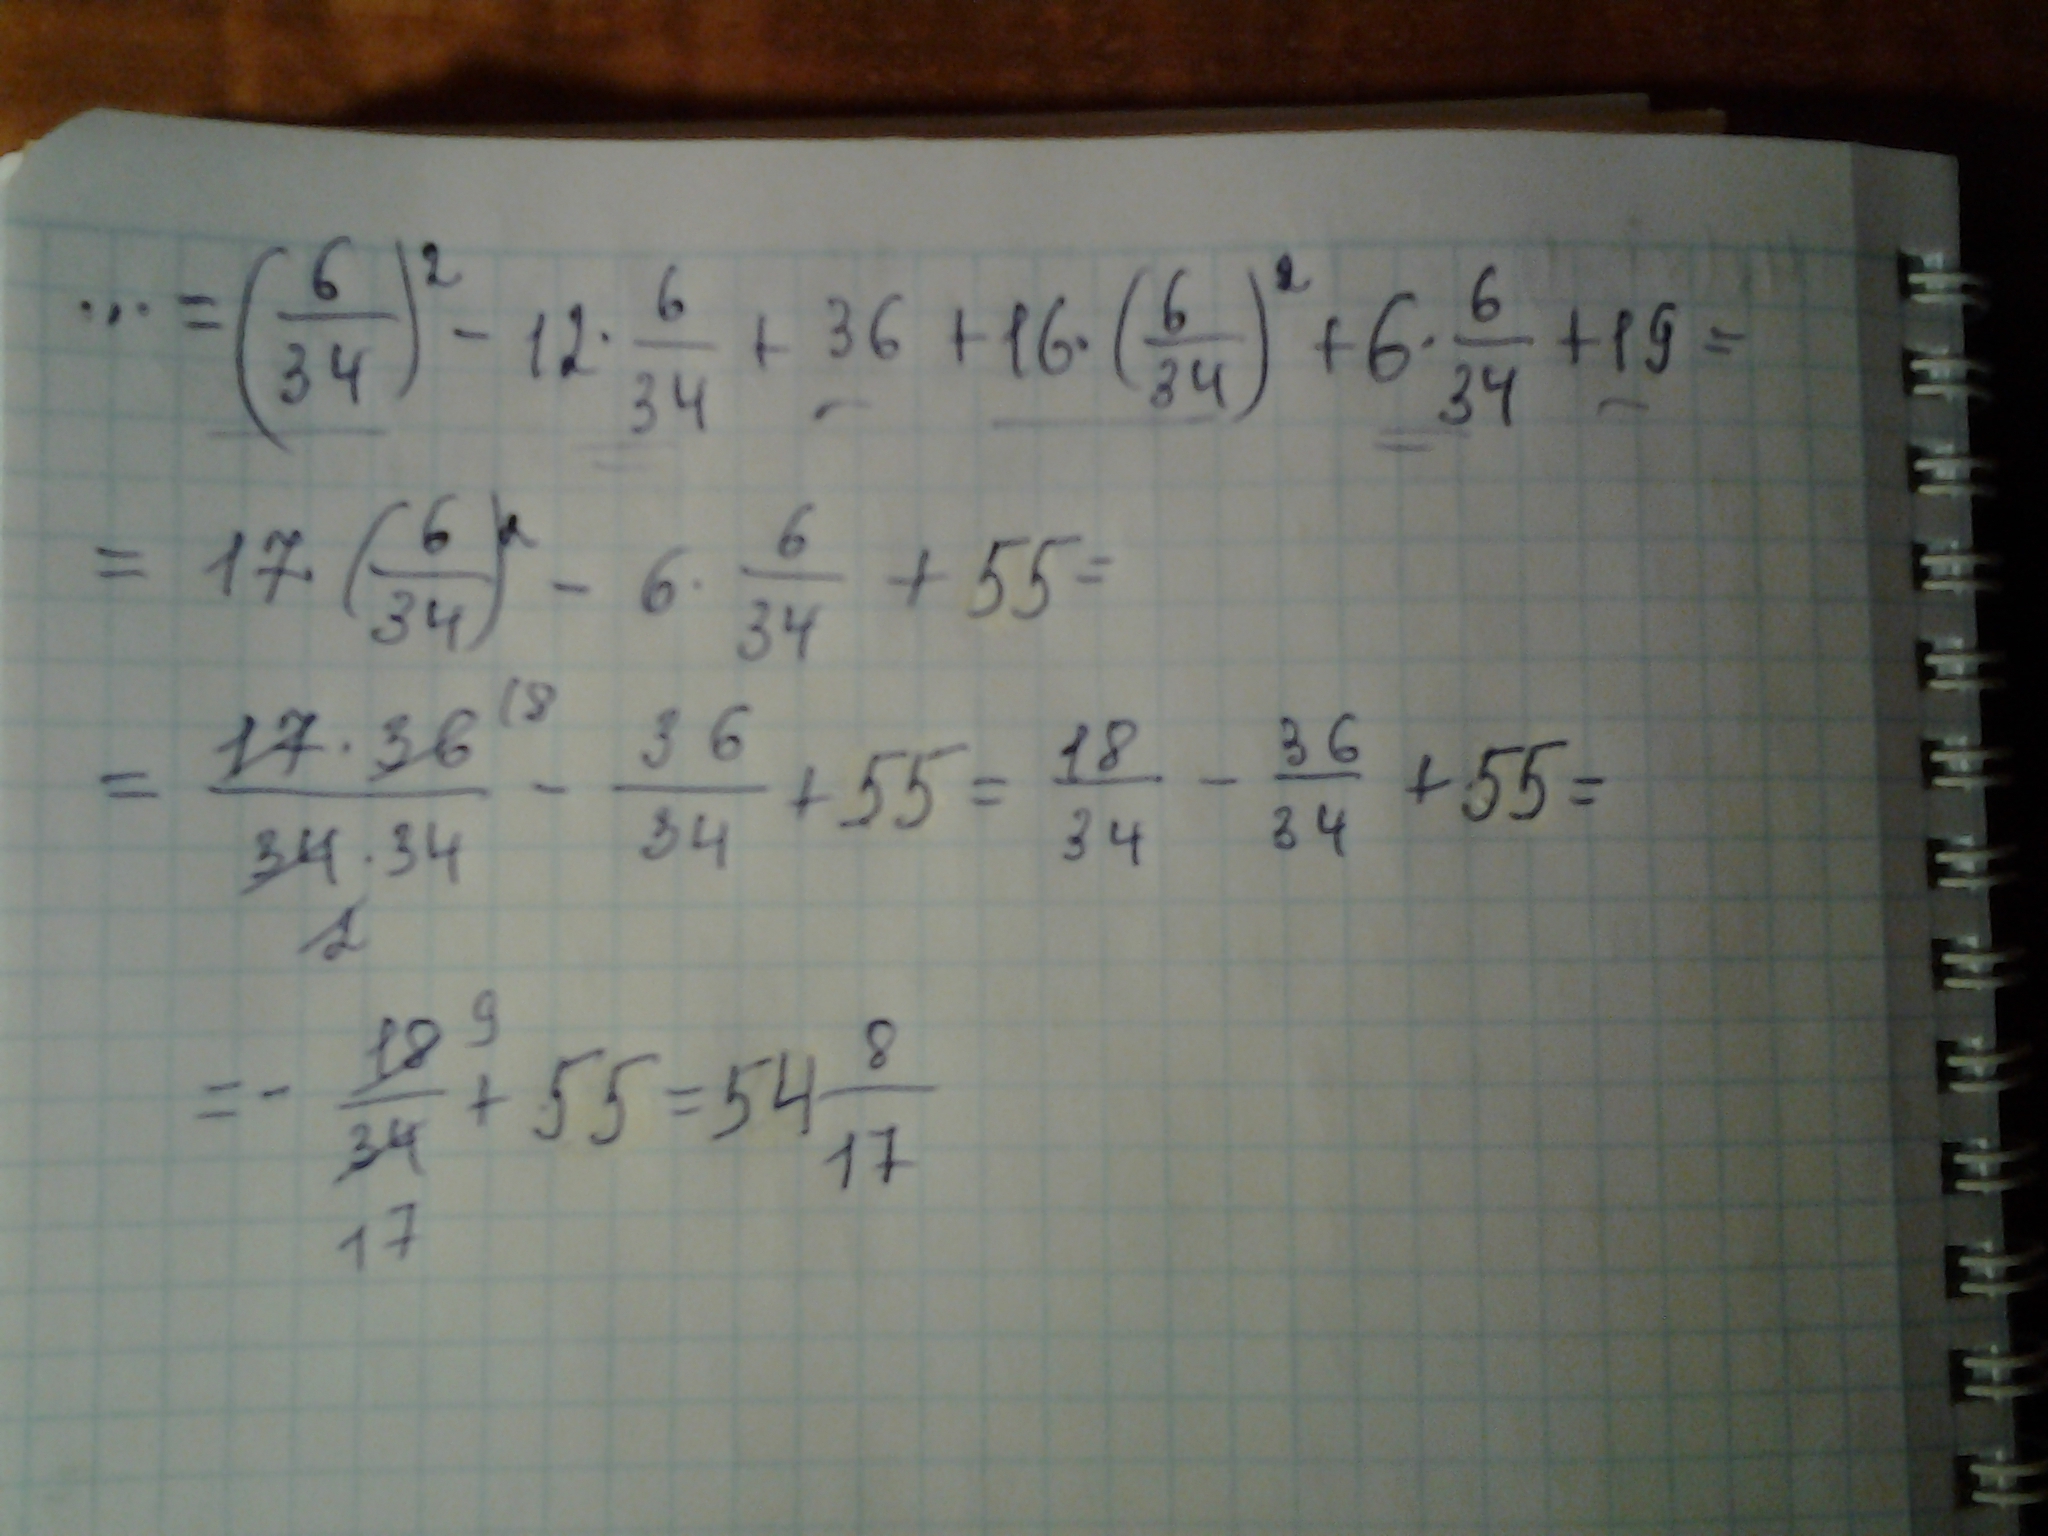 ... = (6/34)² - 12 · 6/34 + 36 + 16 · (6/34)² + 6 · 6/34 + 19 =
= 17 · (6/34)² - 6 · 6/34 + 55 =
= 17 · 36 18 / 34 · 34 2 - 36/34 + 55 = 18/34 - 36/34 + 55 =
= - 18 9 / 34 17 + 55 = 54 8/17